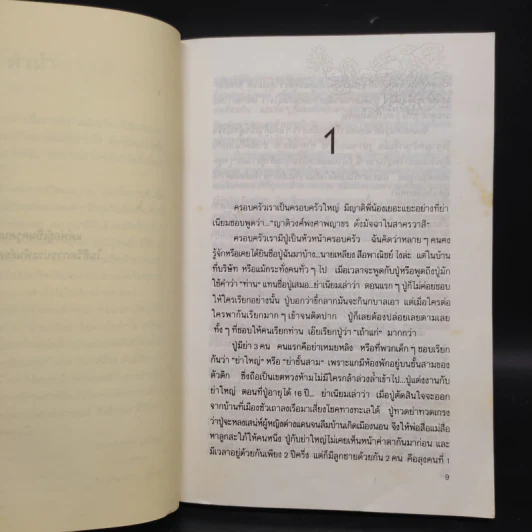 1
ครอบครัวเราเป็นครอบครัวใหญ่ มีญาติพี่น้องเยอะแยะอย่างที่ย่า
เนียมชอบพูดว่า..."ญาติวงค์พงศาพญาขร ดั่งมัจฉาในสาครวารี"
ครอบครัวเรามีปู่เป็นหัวหน้าครอบครัว ฉันคิดว่าหลาย ๆ คนคง
รู้จักหรือเคยได้ยินชื่อปู่ฉันมาบ้าง...นายเหลียง สือพาณิชย์ ไงล่ะ แต่ในบ้าน
ที่บริษัท หรือแม้กระทั่งคนทั่ว ๆ ไป เมื่อเวลาจะพูดกับปู่หรือพูดถึงปู่มัก
ใช้คำว่า "ท่าน" แทนชื่อปู่เสมอ...ย่าเนียมเล่าว่า ตอนแรก ๆ ปู่ก็ไม่ค่อยชอบ
ให้ใครเรียกอย่างนั้น ปู่บอกว่าขี้กลากมันจะกินกบาลเอา แต่เมื่อใครต่อ
ใครพากันเรียกมาก ๆ เข้าจนติดปาก ปู่ก็เลยต้องปล่อยเลยตามเลย
ทั้ง ๆ ที่ชอบให้คนเรียกท่าน เอ๊ยเรียกปู่ว่า "เถ้าแก่" มากกว่า
ปู่มีย่า 3 คน คนแรกคือย่าเหมยหลิง หรือที่พวกเด็ก ๆ ชอบเรียก
กันว่า "ย่าใหญ่" หรือ "ย่าชั้นสาม" เพราะแกมีห้องพักอยู่บนชั้นสามของ
ตัวตึก ซึ่งถือเป็นเขตหวงห้ามไม่มีใครกล้าล่วงล้ำเข้าไป...ปู่แต่งงานกับ
ย่าใหญ่ ตอนที่ปู่อายุได้ 16 ปี... ย่าเนียมเล่าว่า เมื่อปู่ตัดสินใจจะออก
จากบ้านที่เมืองซัวเถาลงเรือมาเสี่ยงโชคทางทะเลใต้ ปู่ทวดย่าทวดเกรง
ว่าปู่จะหลงเสน่ห์ผู้หญิงต่างแดนจนลืมบ้านเกิดเมืองนอน จึงให้พ่อสื่อแม่สื่อ
หาลูกสะใภ้ให้คนหนึ่ง ปู่กับย่าใหญ่ไม่เคยเห็นหน้าค่าตากันมาก่อน และ
มีเวลาอยู่ด้วยกันเพียง 2 ปีครึ่ง แต่ก็มีลูกชายด้วยกัน 2 คน คือลุงคนที่ 1
9